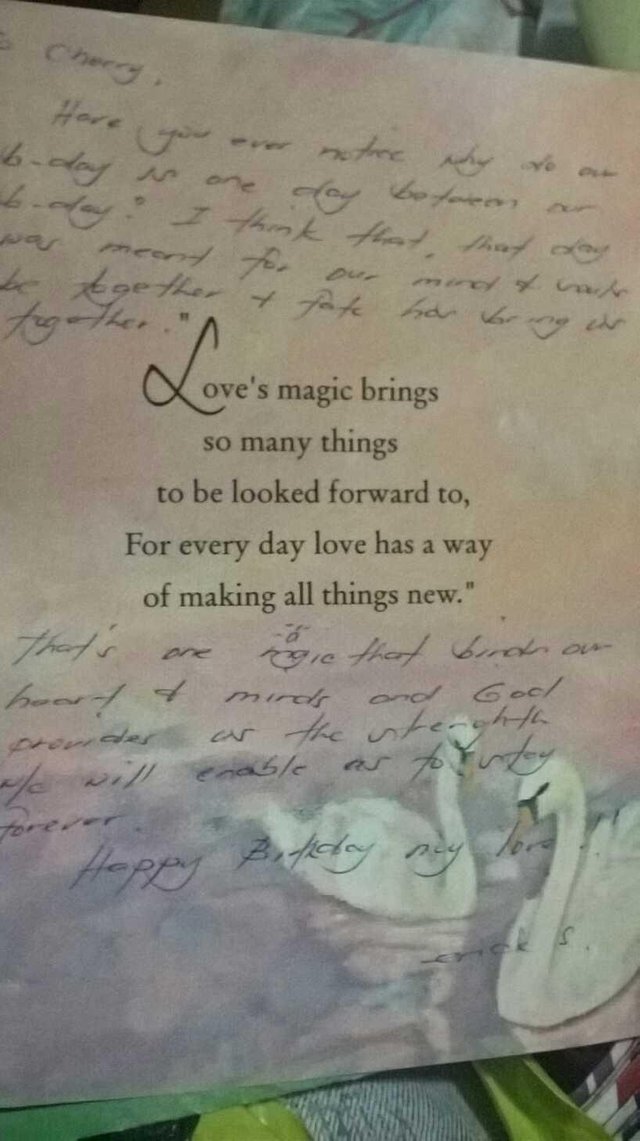 Cherry,
Have you ever notice why do our
b-day is one day between our
b-day? I think that, that day
was meant for our mind &
be together & fate has bring us
together."
Love's magic brings
so many things
to be looked forward to,
For every day love has a way
of making all things new."
That's one magic that binds our
heart & minds and God
provides us the strenghth
w/c will enable us to stay
forever.
Happy Birthday my love!!
S.